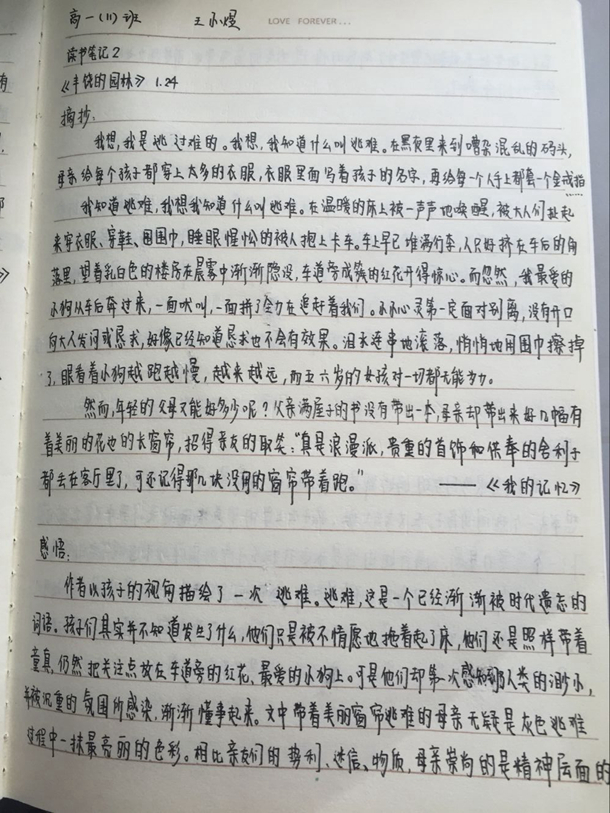 高一(11)班 王小煜 LOVE FOREVER...
读书笔记2
《丰饶的园林》 1.24
摘抄:
我想,我是逃过难的。我想,我知道什么叫逃难。在黑夜里来到嘈杂混乱的码头,
母亲给每个孩子都穿上太多的衣服,衣服里面写着孩子的名字,再给每一个人手上都套一个金戒指
我知道逃难,我想我知道什么叫逃难。在温暖的床上被一声声地唤醒,被大人们扯起
来穿衣服、穿鞋、围围巾,睡眼惺忪的被人抱上卡车。车上早已堆满行李,人只好挤在车后的角
落里,望着乳白色的楼房在晨雾中渐渐隐没,车道旁成簇的红花开得惊心。而忽然,我最爱的
小狗从车后奔过来,一面吠叫,一面拼了全力在追赶着我们。小小心灵第一定面对别离,没有开口
向大人发问或恳求,好像已经知道恳求也不会有效果。泪水连串地滚落,悄悄地用围巾擦掉
了,眼看着小狗越跑越慢,越来越远,而五六岁的女孩对一切都无能为力。
然而,年轻的父母又能好多少呢?父亲满屋子的书没有带出一本,母亲却带出来好几幅有
着美丽的花边的长窗帘,招得亲友的取笑:“真是浪漫派,贵重的首饰和供奉的舍利子
都丢在客厅里了,可还记得那几块没用的窗帘带着跑。” 《我的记忆》
感悟:
作者以孩子的视角描绘了一次 逃难。逃难,这是一个已经渐渐被时代遗忘的
词语。孩子们其实并不知道发生了什么,他们只是被不情愿地拖着起了床,他们还是照样带着
童真,仍然把关注点放在车道旁的红花、最爱的小狗上。可是他们却第一次感知到人类的渺小,
并被沉重的氛围所感染,渐渐懂事起来。文中带着美丽窗帘逃难的母亲无疑是灰色逃难
过程中一抹最亮丽的色彩。相比亲友们的势利、迷信、物质,母亲崇尚的是精神层面的